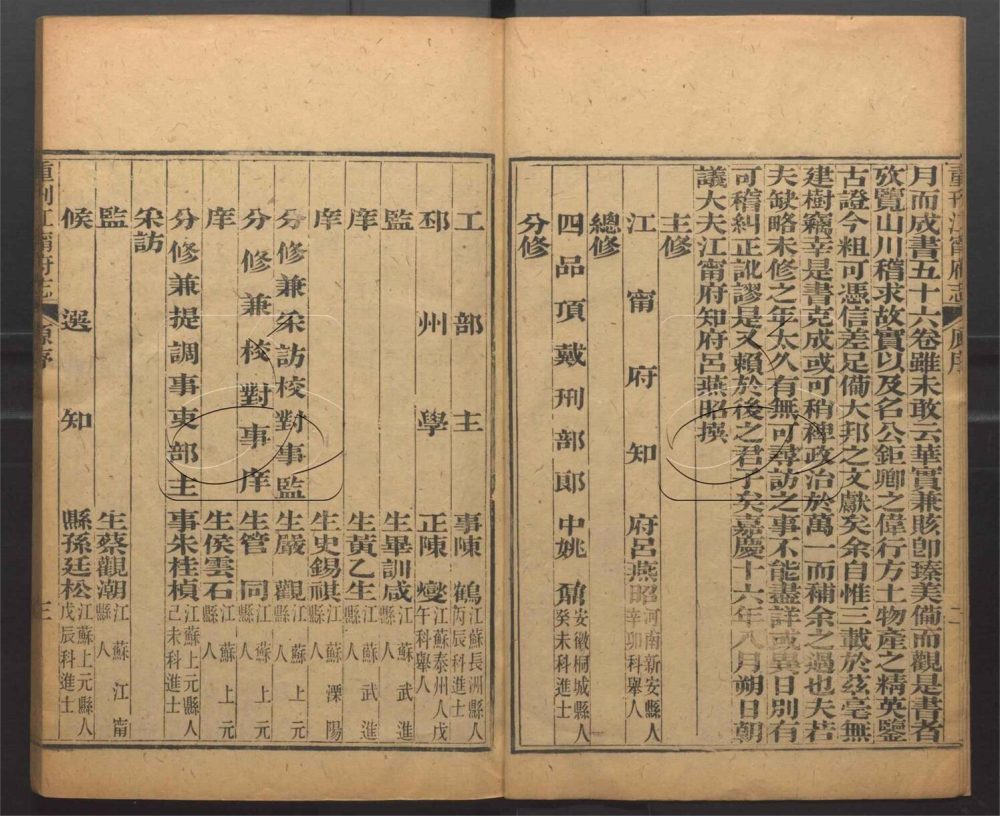 重刊江甯府志 原序 二
月而成書五十六卷雖未敢云華實兼賅卽臻美僃而觀是書者
攷覽山川稽求故實以及名公鉅卿之偉行方土物產之精英鑒
古證今粗可憑信差足僃大邦之文獻矣余自惟三載於茲毫無
建樹竊幸是書克成或可稍稗政治於萬一而補余之過也夫若
夫缺略未修之年太久有無可尋訪之事不能盡詳或異日別有
可稽糾正訛謬是又賴於後之君子矣嘉慶十六年八月朔日朝
議大夫江甯府知府呂燕昭撰
主修
江甯府知府呂燕昭河南新安縣人辛卯科舉人
總修
四品頂戴刑部郞中姚鼐安徽桐城縣人癸未科進士
分修
工部主事陳鶴江蘇長洲縣人丙辰科進士
邳州學正陳燮江蘇泰州人戊午科舉人
監生畢訓咸江蘇武進縣人
庠生黃乙生江蘇武進縣人
庠生史錫祺江蘇溧陽縣人
分修兼采訪校對事監生嚴觀江蘇上元縣人
分修兼校對事庠生管同江蘇上元縣人
庠生侯雲石江蘇上元縣人
分修兼提調事吏部主事朱桂楨江蘇上元縣人己未科進士
采訪
監生蔡觀潮江蘇江甯縣人
候選知縣孫廷松江蘇上元縣人戊辰科進士
重刊江甯府志 原序 三